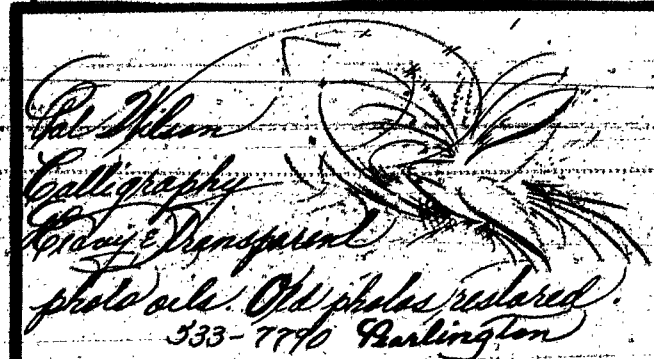 Val Wilson
Calligraphy
Heavy & Transparent
photo oils. Old photos restored.
533-7790 Barlington